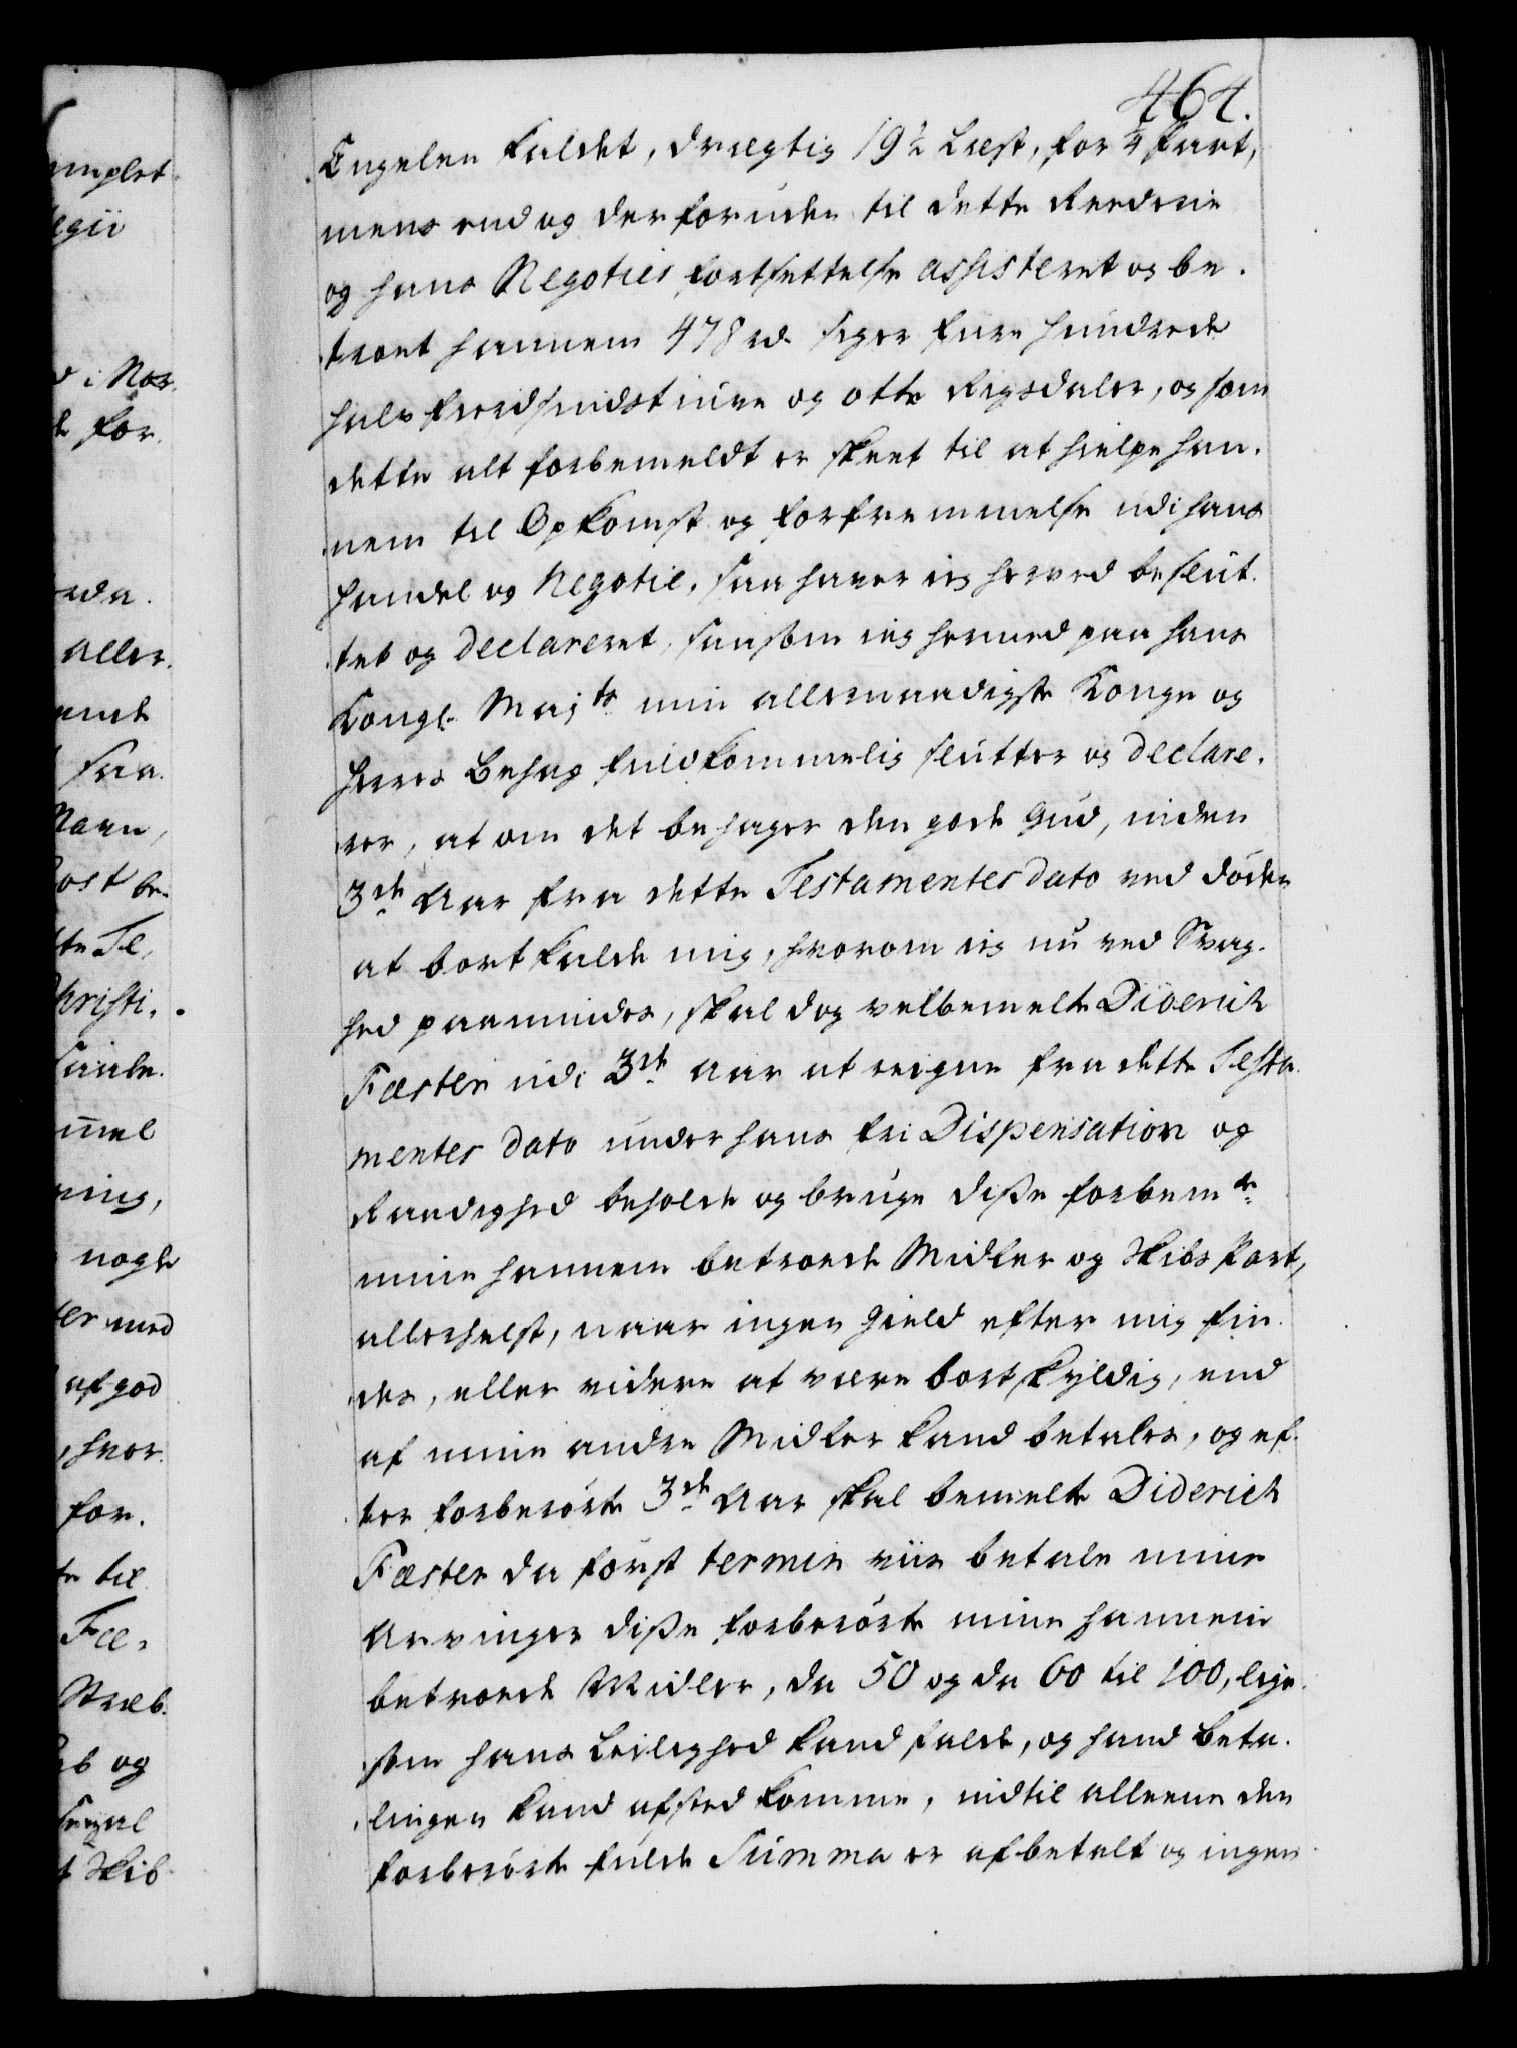 464.
Engelen kaldet, drægtig 19½ Læst, for ¼ Part,
mens end og der foruden til dette Rederie
og hans Negoties fortsettelse assisteret og be-
troet hannem 478 rd. siger fire hundrede
halvfierdsindstiuve og otte Rigsdaler, og som
dette alt forbemeldt er skeet til at hielpe han-
nem til Opkomst og forfremmelse udi hans
Handel og Negotie, saa haver ieg herved beslut-
tet og declareret, saasom ieg hermed paa Hans
Kongl. Majts min allernaadigste Konge og
Herres Behag fuldkommelig slutter og declare-
rer, at om det behager den gode Gud, inden
3de Aar fra dette Testamentes dato ved døden
at bortkalde mig, hvorom ieg nu ved Svag-
hed paamindes, skal dog velbemelte Diderich
Fæster udi 3de Aar at reigne fra dette Testa-
mentes dato under hans fri Dispensation og
Raadighed beholde og bruge disse forbemte
mine hannem betroede Midler og Skibs Part,
allerhelst, naar ingen Gield efter mig fin-
des, eller videre at være bortskyldig, end
af mine andre Midler kand betales, og ef-
ter forberørte 3de Aar skal bemelte Diderich
Fæster da først termin viis betale mine
Arvinger disse forberørte mine hannem
betroede Midler, da 50 og da 60 til 100, lige-
som hans Leilighed kand falde, og hand Beta-
lingen kand afsted komme, indtil alleene den
forberørte fulde Summa er afbetalt og ingen